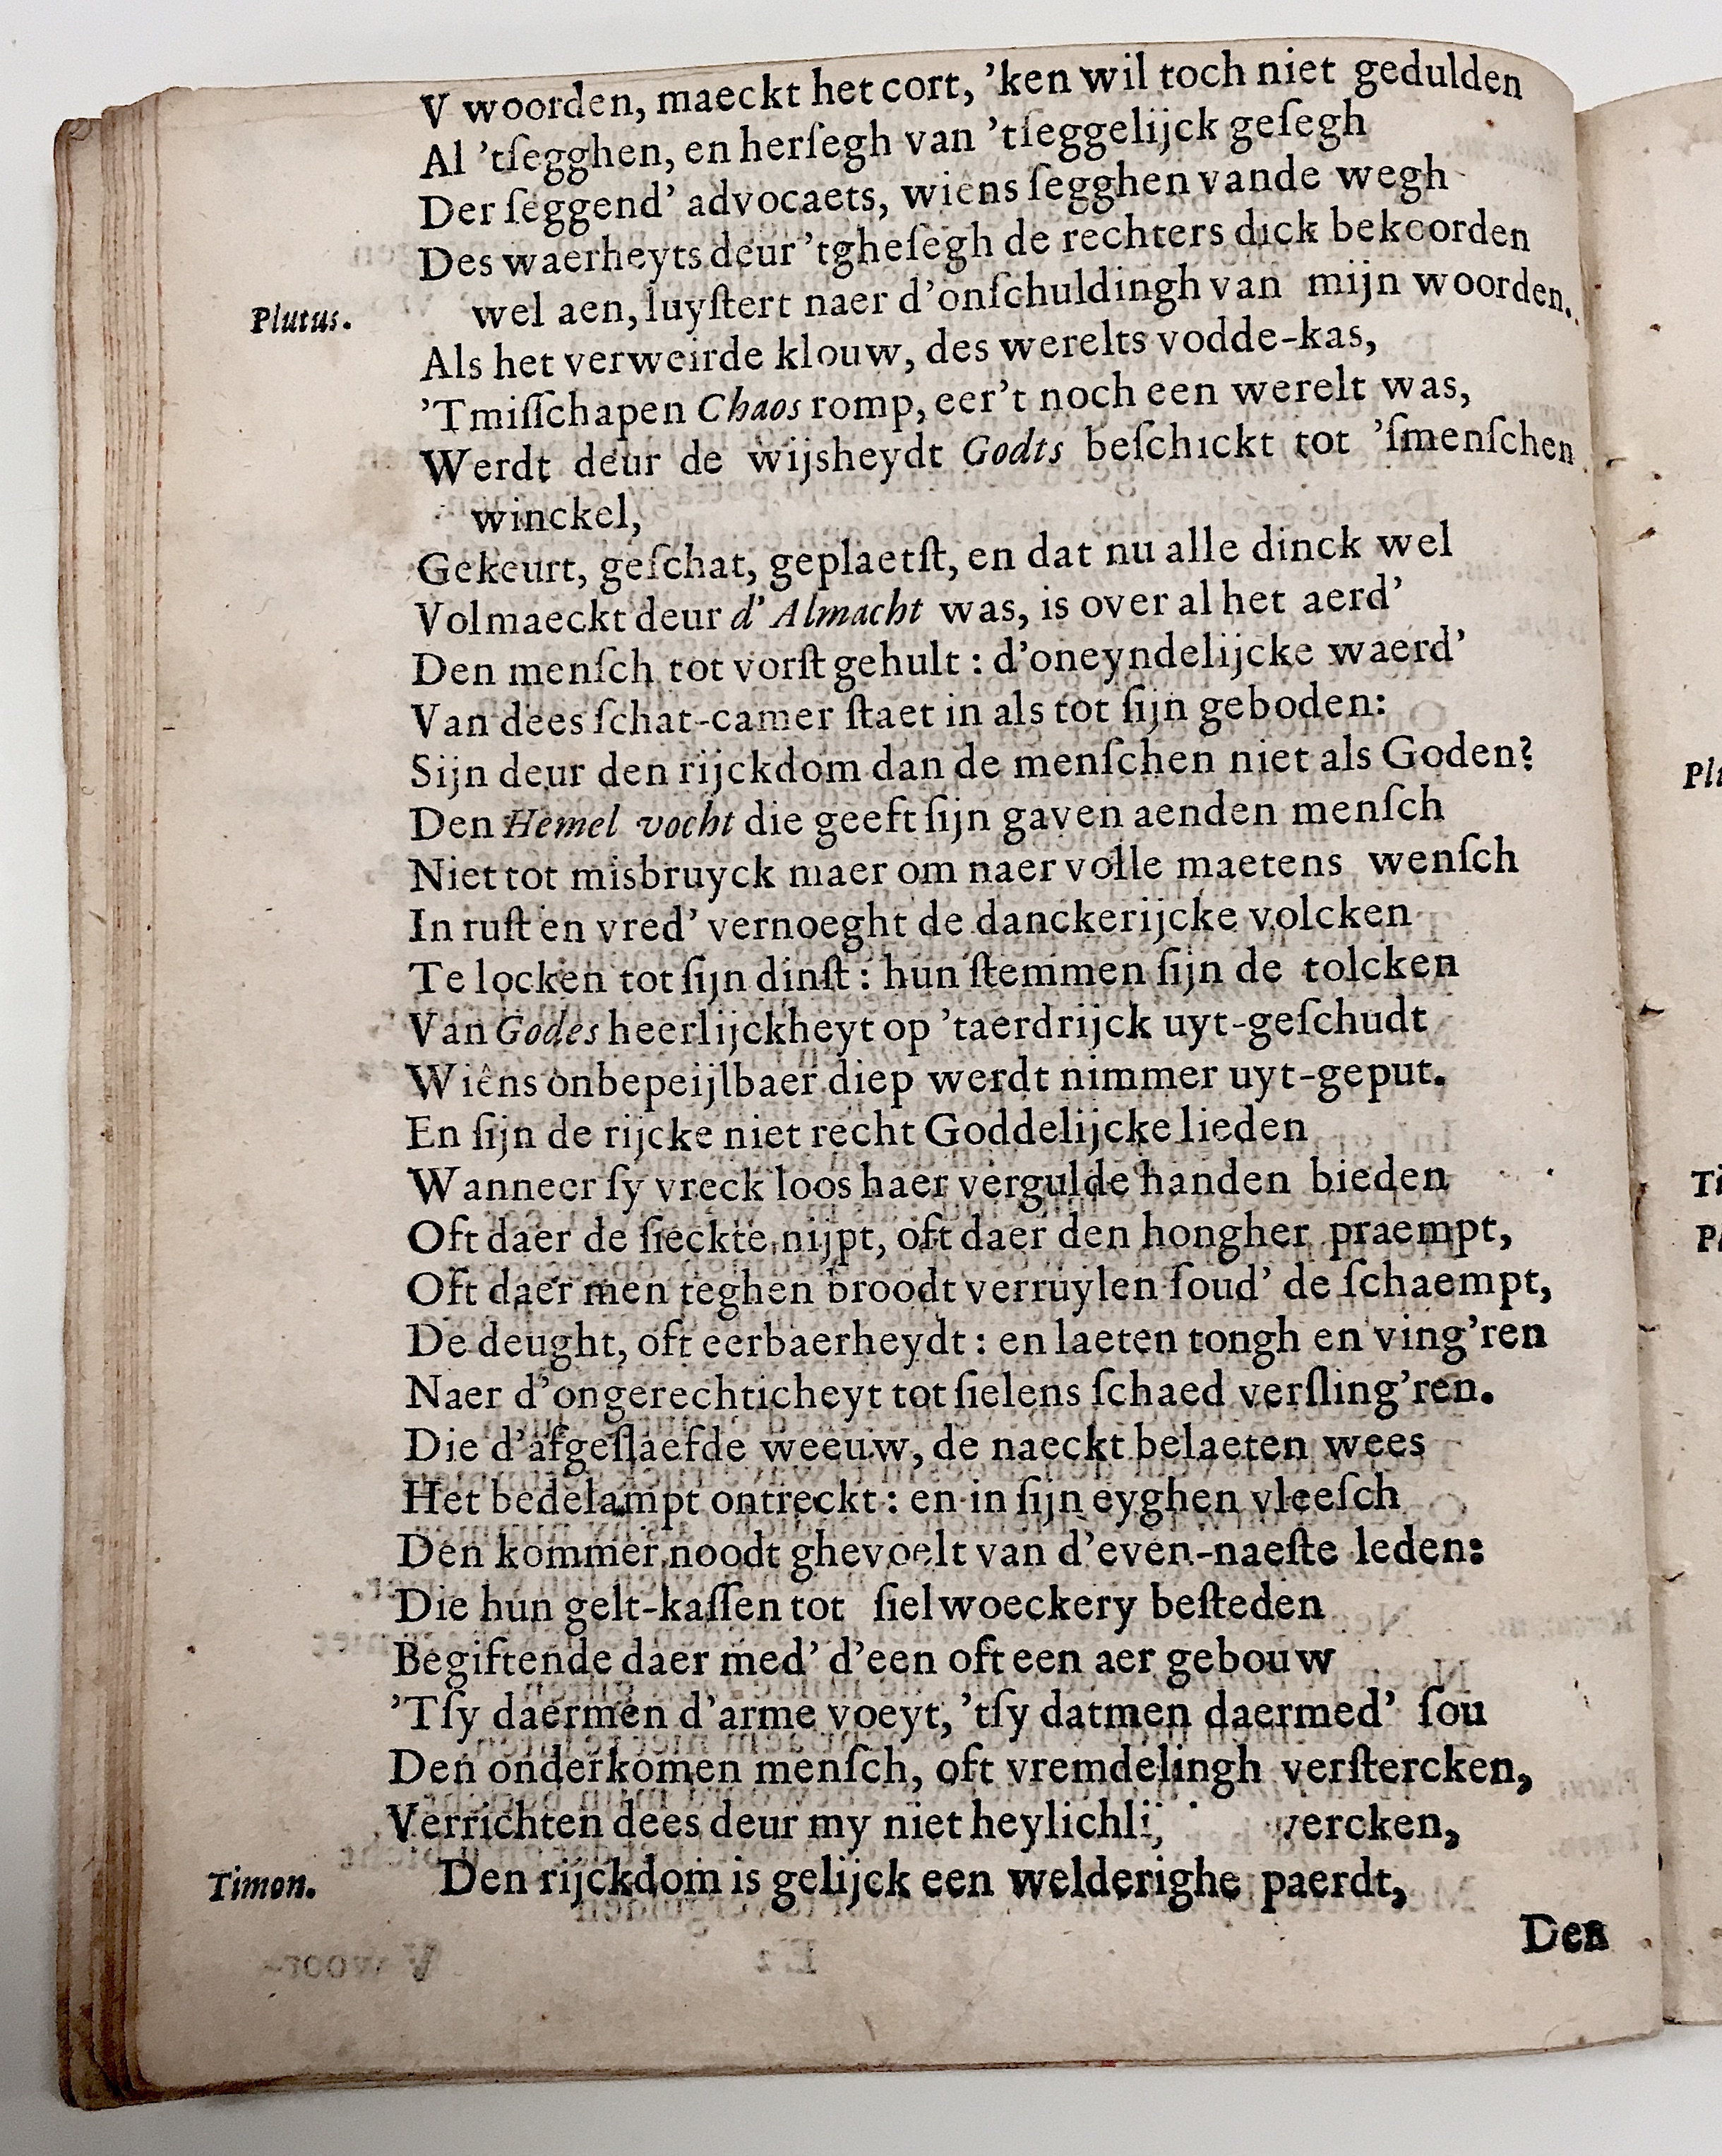 V woorden, maeckt het cort, ’ken wil toch niet gedulden
Al ’tſegghen, en herſegh van ’tſeggelijck geſegh
Der ſeggend’ advocaets, wiens ſegghen vande wegh
Des waerheyts deur ’tgheſegh de rechters dick bekoorden
Plutus. wel aen, luyſtert naer d’onſchuldingh van mijn woorden.
Als het verweirde klouw, des werelts vodde-kas,
’Tmiſſchapen Chaos romp, eer’t noch een werelt was,
Werdt deur de wijsheydt Godts beſchickt tot ’ſmenſchen
winckel,
Gekeurt, geſchat, geplaetſt, en dat nu alle dinck wel
Volmaeckt deur d’Almacht was, is over al het aerd’
Den menſch tot vorſt gehult : d’oneyndelijcke waerd’
Van dees ſchat-camer ſtaet in als tot ſijn geboden:
Sijn deur den rijckdom dan de menſchen niet als Goden?
Den Hemel vocht die geeft ſijn gaven aenden menſch
Niet tot misbruyck maer om naer volle maetens wenſch
In ruſt en vred’ vernoeght de danckerijcke volcken
Te locken tot ſijn dinſt : hun ſtemmen ſijn de tolcken
Van Godes heerlijckheyt op ’taerdrijck uyt-geſchudt
Wiêns onbepeijlbaer diep werdt nimmer uyt-geput.
En ſijn de rijcke niet recht Goddelijcke lieden
Wanneer ſy vreck loos haer vergulde handen bieden
Oft daer de ſieckte nijpt, oft daer den hongher praempt,
Oft daer men teghen broodt verruylen ſoud’ de ſchaempt,
De deught, oft eerbaerheydt : en laeten tongh en ving’ren
Naer d’ongerechticheyt tot ſielens ſchaed verſling’ren.
Die d’afgeſlaefde weeuw, de naeckt belaeten wees
Het bedelampt ontreckt : en in ſijn eyghen vleeſch
Den kommer noodt ghevoelt van d’even-naeſte leden:
Die hun gelt-kaſſen tot ſiel woeckery beſteden
Begiftende daer med’ d’een oft een aer gebouw
’Tſy daermen d’arme voeyt, ’tſy datmen daermed’ ſou
Den onderkomen menſch, oft vremdelingh verſtercken,
Verrichten dees deur my niet
Timon. Den rijckdom is gelijck een welderighe paerdt,
Den